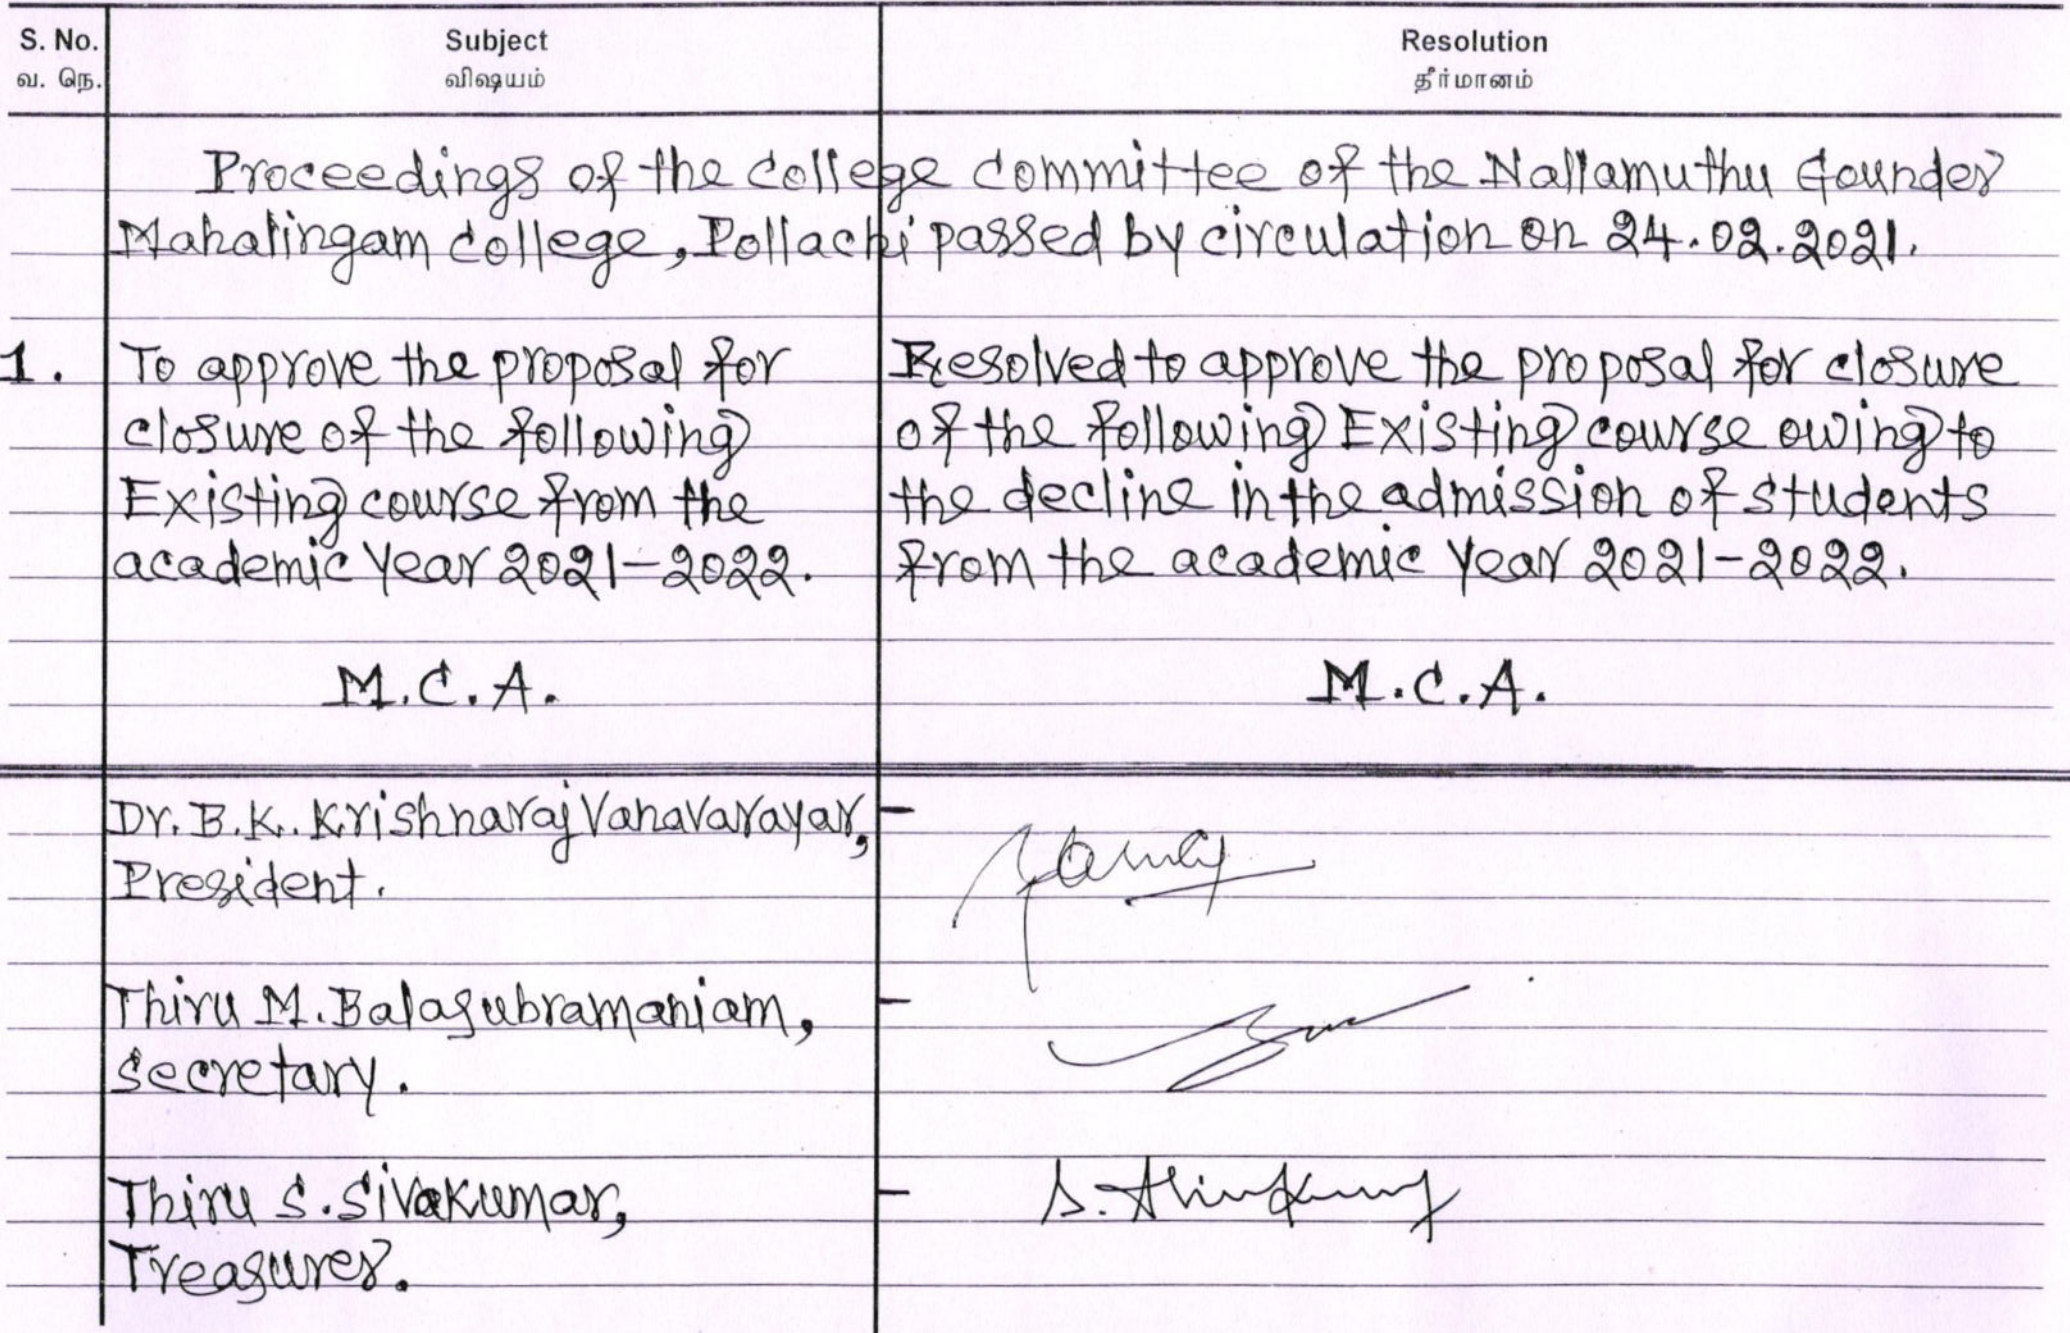 S. No. Subject Resolution
வ. நெ. விஷயம் தீர்மானம்
Proceedings of the college committee of the Nallamuthu Gounder
Mahalingam college, Pollachi passed by circulation on 24.02.2021.
1. To approve the proposal for
closure of the following
Existing course from the
academic year 2021-2022.
M.C.A.
Resolved to approve the proposal for closure
of the following Existing course owing to
the decline in the admission of students
from the academic year 2021-2022.
M.C.A.
Dr. B.K. Krishnaraj Vanavarayar, -
President.
Thiru M. Balasubramaniam, -
secretary.
Thiru S. Sivakumar, -
Treasurer.